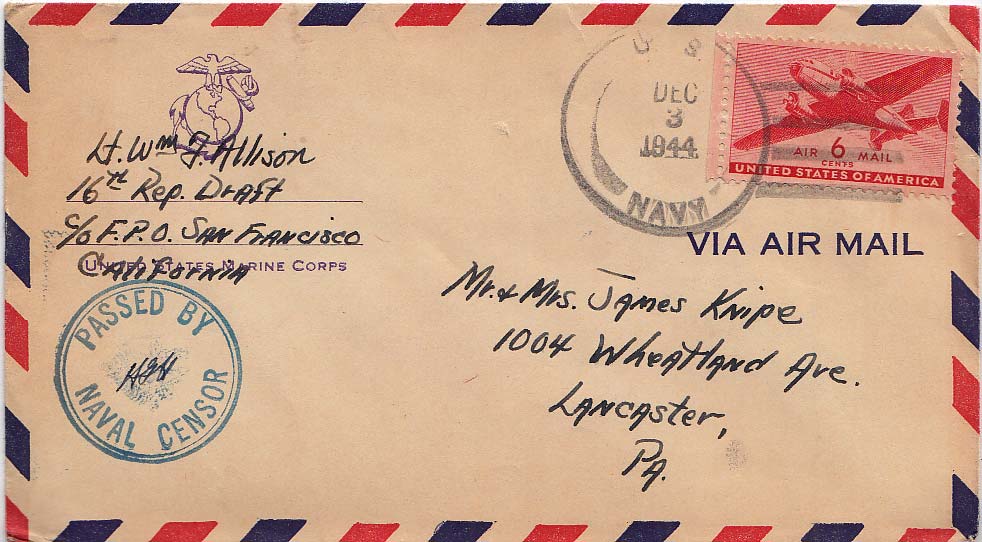 Lt. Wm J. Allison
16th Rep. Draft
c/o F.P.O. San Francisco
California
United States Marine Corps
U S
DEC
3
1944
NAVY
AIR 6 MAIL
CENTS
UNITED STATES OF AMERICA
VIA AIR MAIL
Mr. & Mrs. James Knipe
1004 Wheatland Ave.
Lancaster,
Pa.
PASSED BY
NAVAL CENSOR